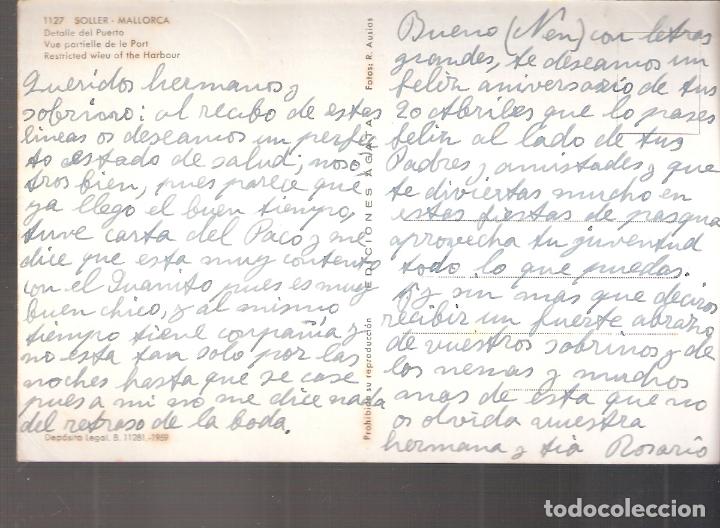 1127 SOLLER - MALLORCA
Detalle del Puerto
Vue partielle de le Port
Restricted wieu of the Harbour
Queridos hermanos y
sobrino: al recibo de estas
lineas os deseamos un perfec
to estado de salud; noso
tros bien, pues parece que
ya llego el buen tiempo,
tuve carta del Paco y me
dice que esta muy contento
con el Juanito pues es muy
buen chico, y al mismo
tiempo tiene conpañia y
no esta tan solo por las
noches hasta que se case
pues a mi no me dice nada
del retraso de la boda.
Depósito Legal, B. 11281.-1959
Prohibida su reproducción
EDICIONES AGATA
Fotos: R. Ausias
Bueno (Nen) con letras
grandes, te deseamos un
felin aniversario de tus
20 Abriles que lo pases
felin al lado de tus
Padres y amistades y que
te diviertas mucho en
estas fiestas de pasqua
aprovecha tu juventud
todo lo que puedas.
y sin mas que deciros
recibir un fuerte abrazo
de vuestros sobrinos y de
las nenas y muchos
mas de esta que no
os olvida vuestra
hermana y tia Rosario
todocoleccion.net